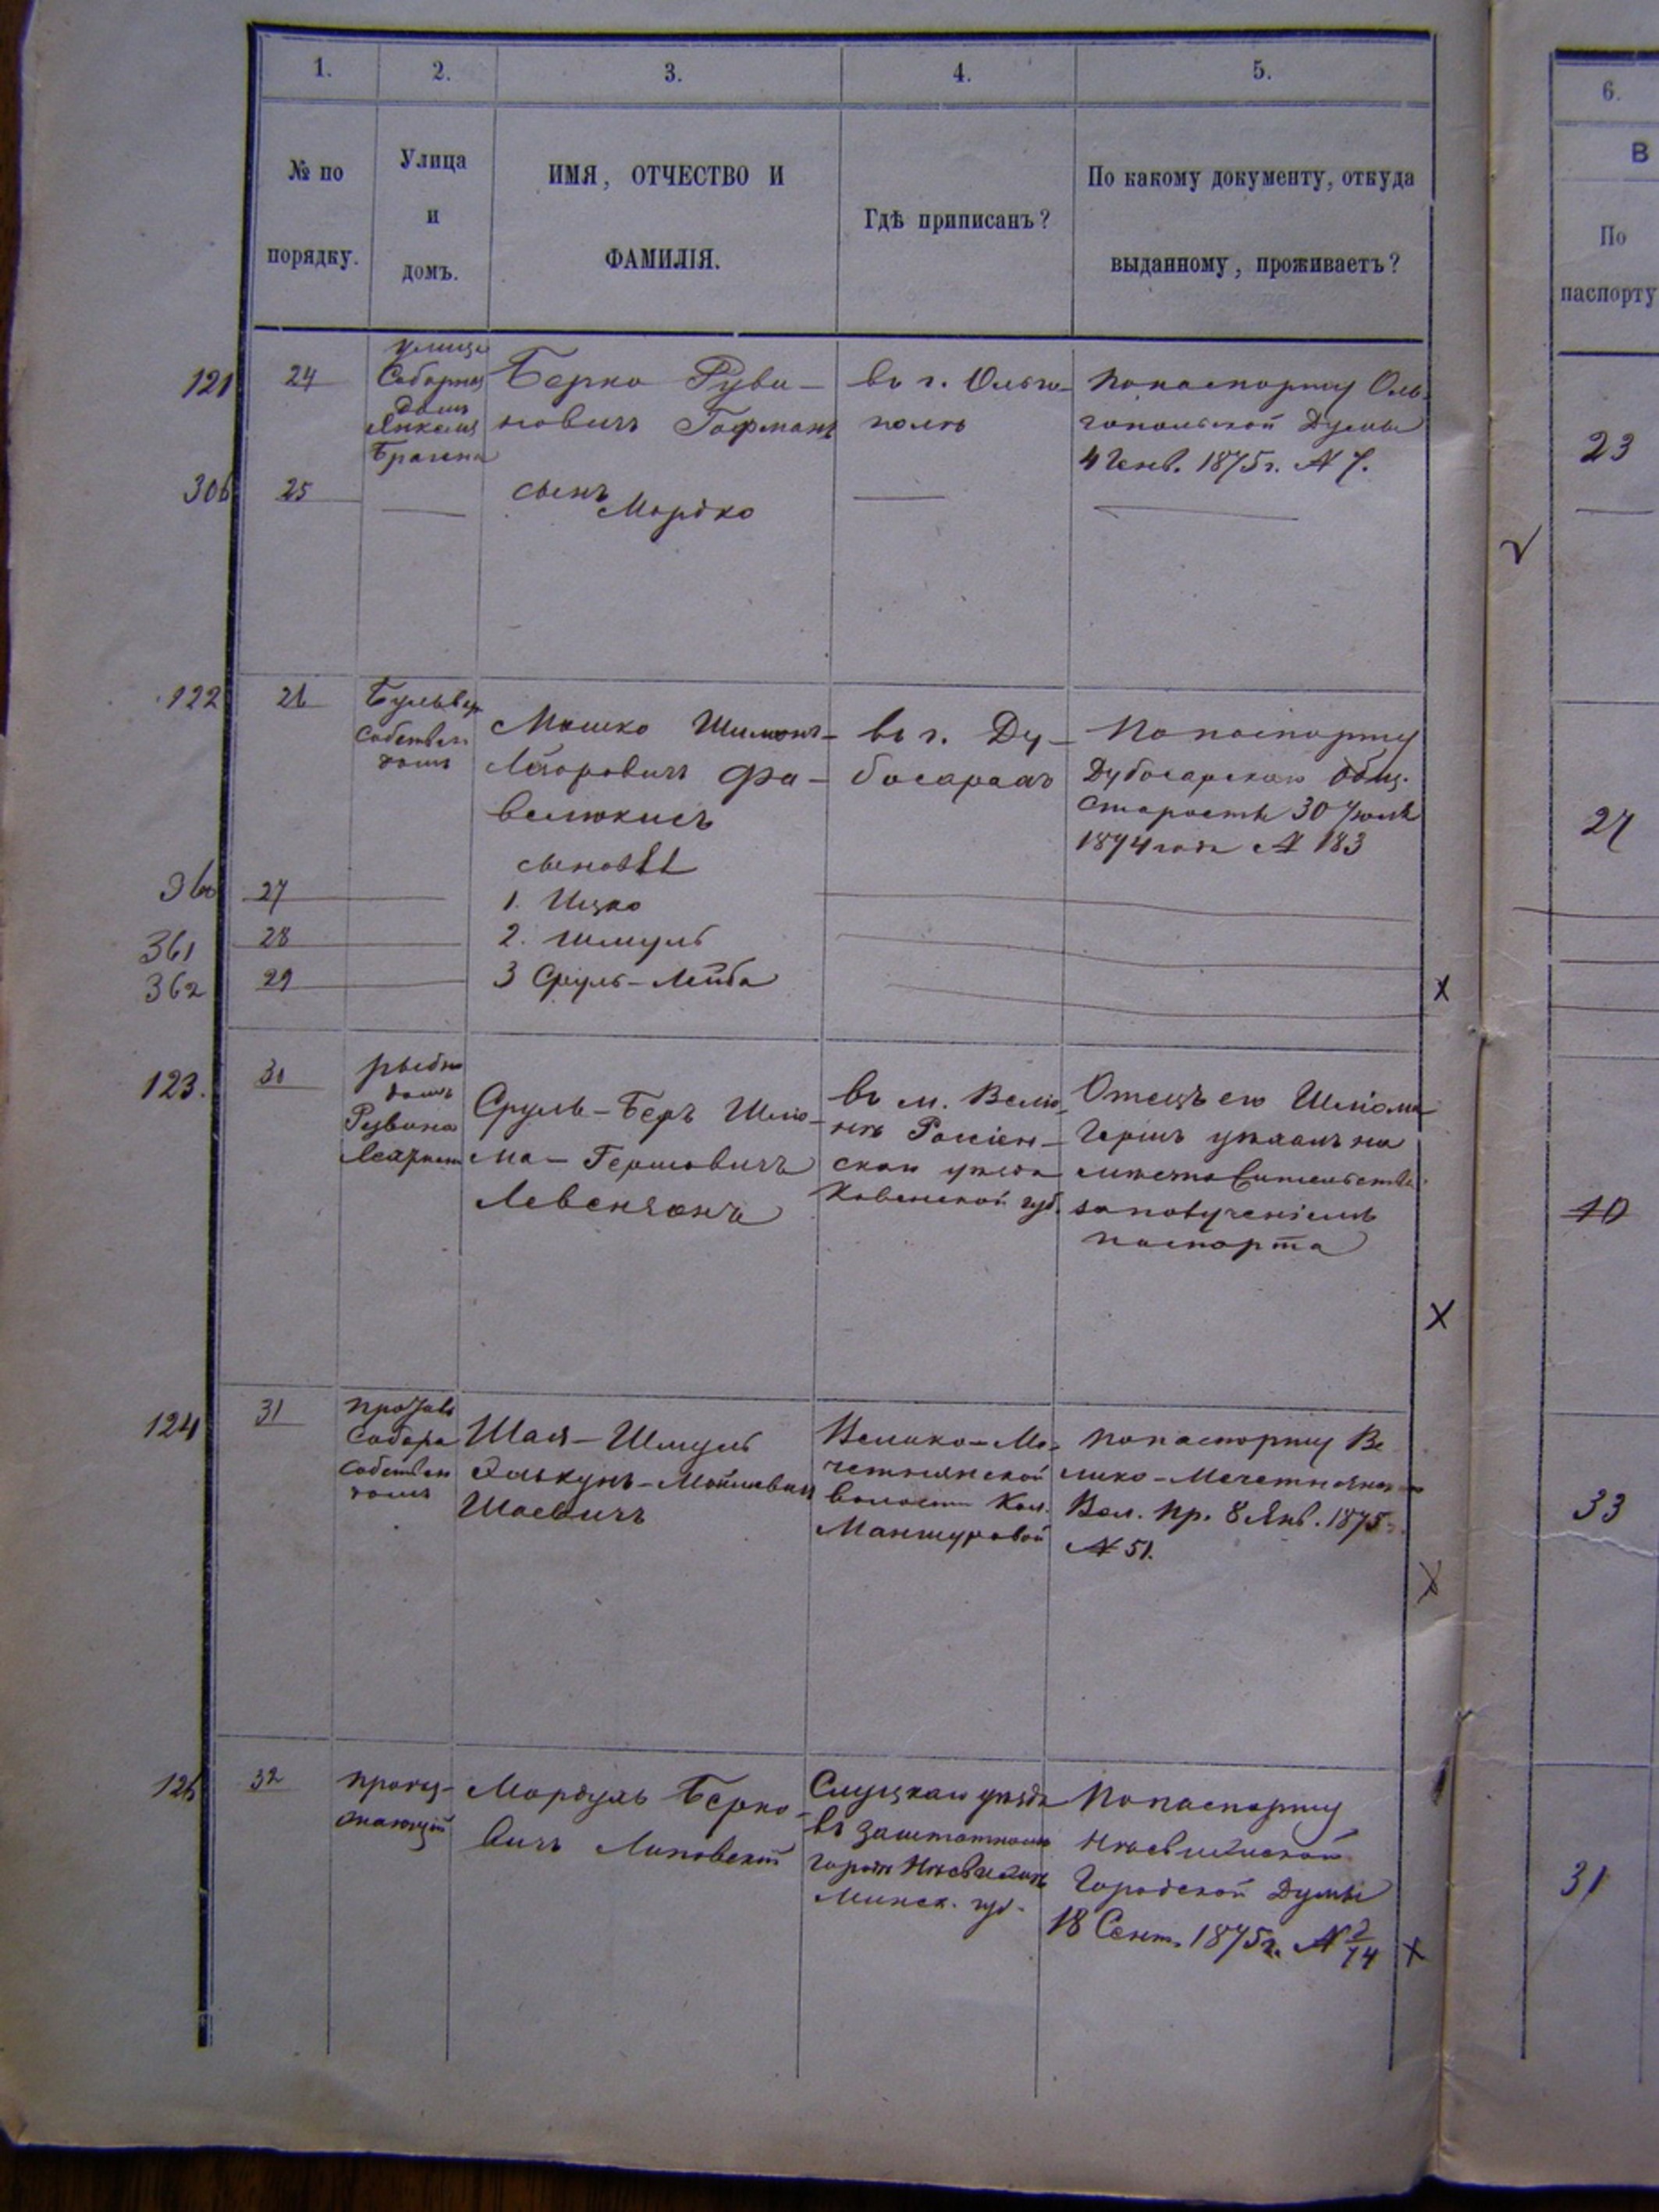 1.
2.
3.
4.
5.
6.
№ по
порядку.
Улица
и
домъ.
ИМЯ, ОТЧЕСТВО И
ФАМИЛІЯ.
Гдѣ приписанъ?
По какому документу, откуда
выданному, проживаетъ?
В
По
паспорту
121
24
улица
Соборная
домъ
Янкеля
Берко Руви-
новичъ Гофманъ
въ г. Ольго-
полѣ
По паспорту Оль-
гопольской Думы
4 Генв. 1875 г. № 7.
23
306
25
сынъ
Мордко
122
26
Бульвар
Собствен
домъ
Мошко Шимонъ-
Лейзоровичъ
въ г. Ду-
босарахъ
По паспорту
Дубосарскаго Общ.
Старосты 30 Іюля
1874 года № 183
27
сыновья
360
27
1. Ицко
361
28
2. Шмуль
362
29
3 Сруль-Лейба
123.
30
рыбн
домъ
Рувина
Сруль-Беръ Шлио-
ма-Гершовичъ
Левензонъ
въ м.
Россіен-
скаго уѣзда
Ковенской губ.
Отецъ его Шліома
Гершъ уѣхалъ на
мѣсто жительства
за полученіемъ
паспорта
10
124
31
против
Собора
Собствен
домъ
Шая-Шмуль
Шаевичъ
Велико-Ме-
четнянской
волости Кол.
Маншуровой
По паспорту Ве
лико-Мечетнянск
Вол. Пр. 8 Янв. 1875 г.
№ 51.
33
126
32
Мордухъ Берко-
вичъ Липовскій
Слуцкаго уѣзда
въ заштатномъ
городѣ Несвижѣ
Минск. губ.
По паспорту
Несвижской
Городской Думы
18 Сент. 1875 г. № 2/14
31